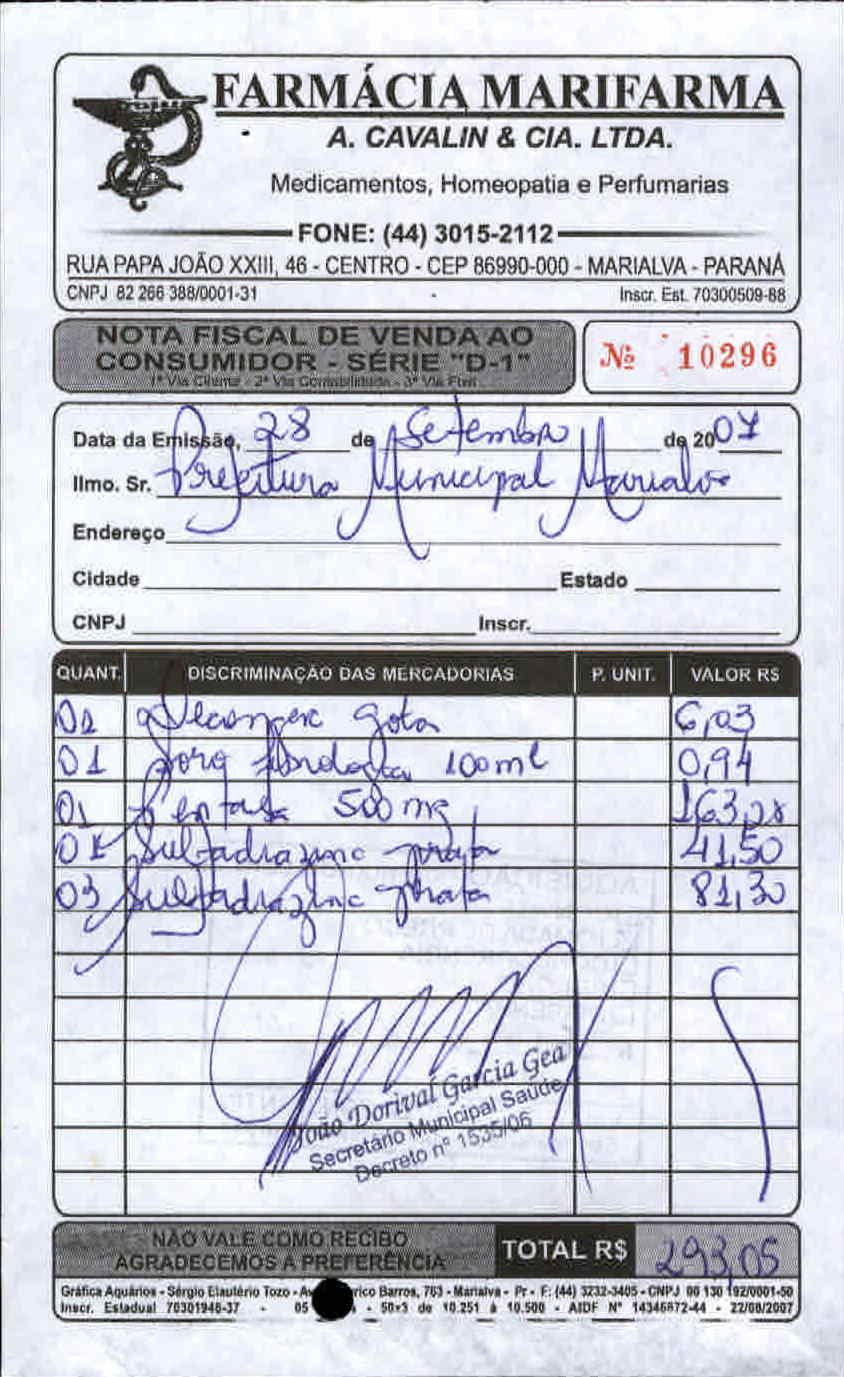 FARMÁCIA MARIFARMA
A. CAVALIN & CIA. LTDA.
Medicamentos, Homeopatia e Perfumarias
FONE: (44) 3015-2112
RUA PAPA JOÃO XXIII, 46 - CENTRO - CEP 86990-000 - MARIALVA - PARANÁ
CNPJ 82 266 388/0001-31 Inscr. Est. 70300509-88
NOTA FISCAL DE VENDA AO
CONSUMIDOR - SÉRIE "D-1"
1ª Via Cliente - 2ª Via Contabilidade - 3ª Via Fixa
Nº 10296
Data da Emissão, 28 de Setembro de 2007
Ilmo. Sr. Prefeitura Municipal Marialva
Endereço
Cidade Estado
CNPJ Inscr.
QUANT. DISCRIMINAÇÃO DAS MERCADORIAS P. UNIT. VALOR R$
gota 6,03
01 100ml 0,94
01 Pentasa 500 mg 163,28
01 Sulfadiazina prata 41,50
03 Sulfadiazina prata 81,30
João Dorival Garcia Gea
Secretário Municipal Saúde
Decreto nº 1535/06
NÃO VALE COMO RECIBO
AGRADECEMOS A PREFERÊNCIA
TOTAL R$ 293,05
Gráfica Aquários - Sérgio Elautério Tozo - Barros, 763 - Marialva - Pr - F: (44) 3232-3405 - CNPJ 00 130 192/0001-50
Inscr. Estadual 70301946-37 - 05 - 50x3 de 10.251 à 10.500 - AIDF Nº 14346872-44 - 22/08/2007